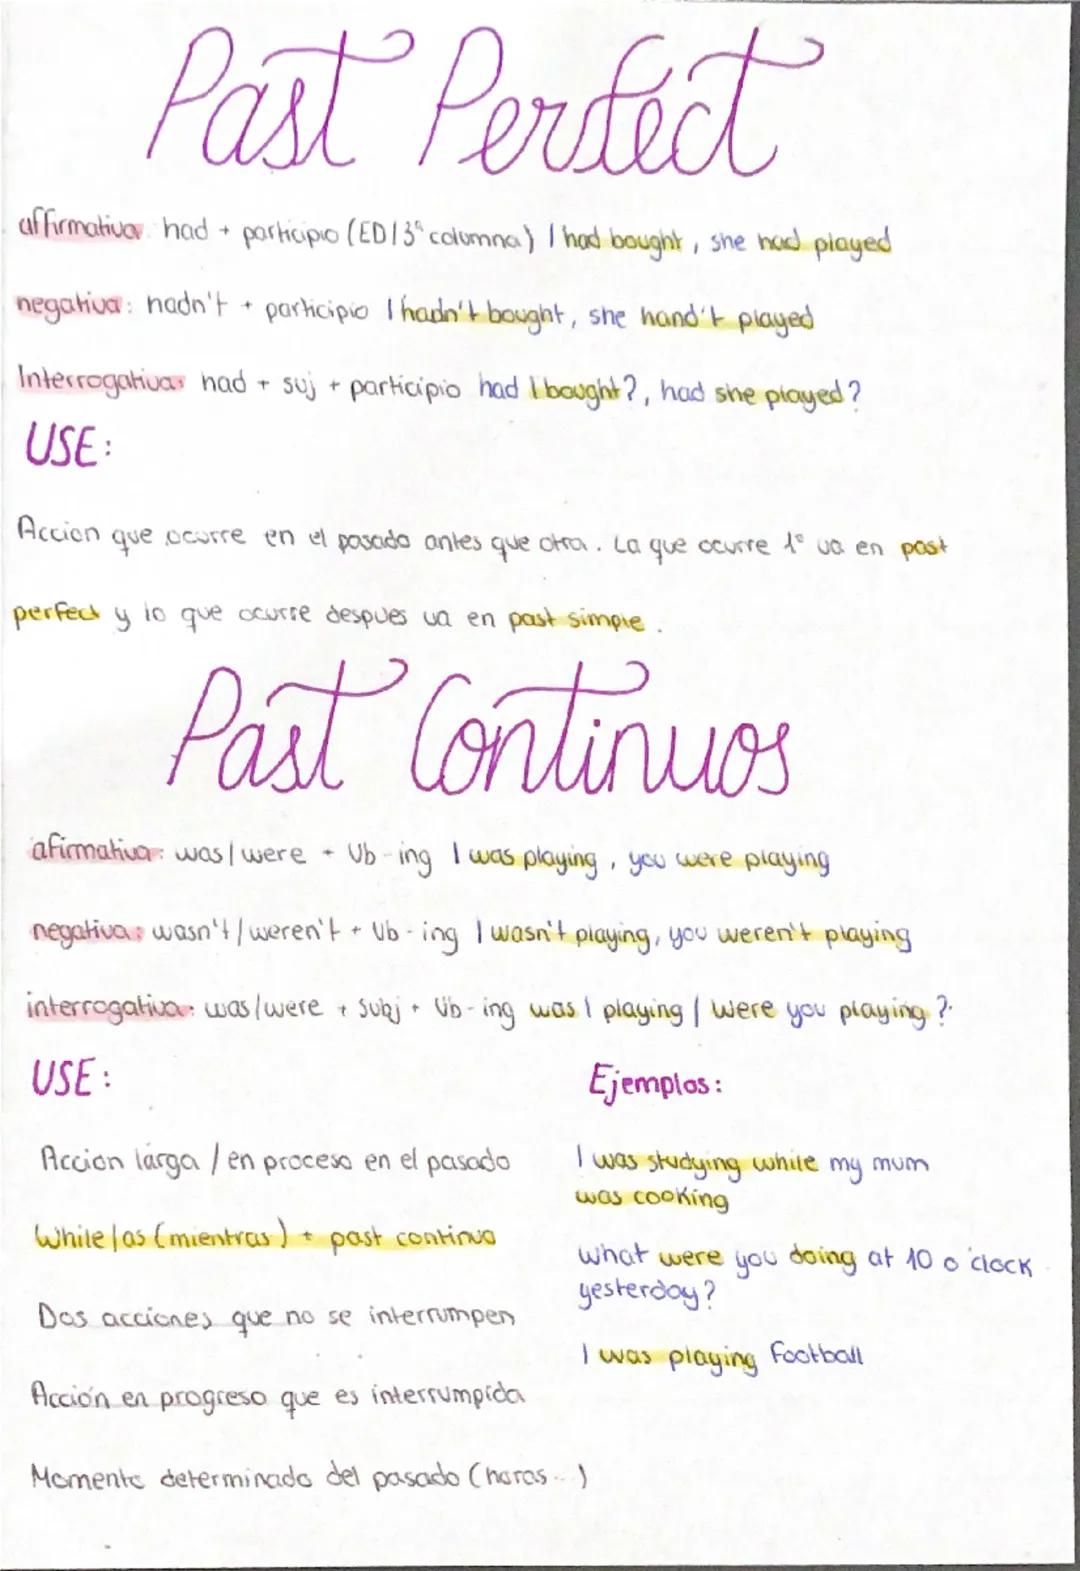 Past Perfect
affirmativa: had + participio (ED/3ª columna) I had bought, she had played
negativa: hadn't + participio I hadn't bought, she hand't played
Interrogativa: had + suj + participio had I bought?, had she played?
USE:
Accion que ocurre en el pasado antes que otra. La que ocurre 1º va en past
perfect y lo que ocurre despues va en past simple.
Past Continuos
afirmativa: was/were + Vb-ing I was playing, you were playing
negativa: wasn't/weren't + Vb-ing I wasn't playing, you weren't playing
interrogativa: was/were + Subj + Vb-ing was I playing / Were you playing?
USE:
Accion larga / en proceso en el pasado
While/as (mientras) + past continuo
Dos acciones que no se interrumpen
Acción en progreso que es interrumpida
Momento determinado del pasado (horas...)
Ejemplos:
I was studying while my mum
was cooking
What were you doing at 10 o'clock
yesterday?
I was playing football